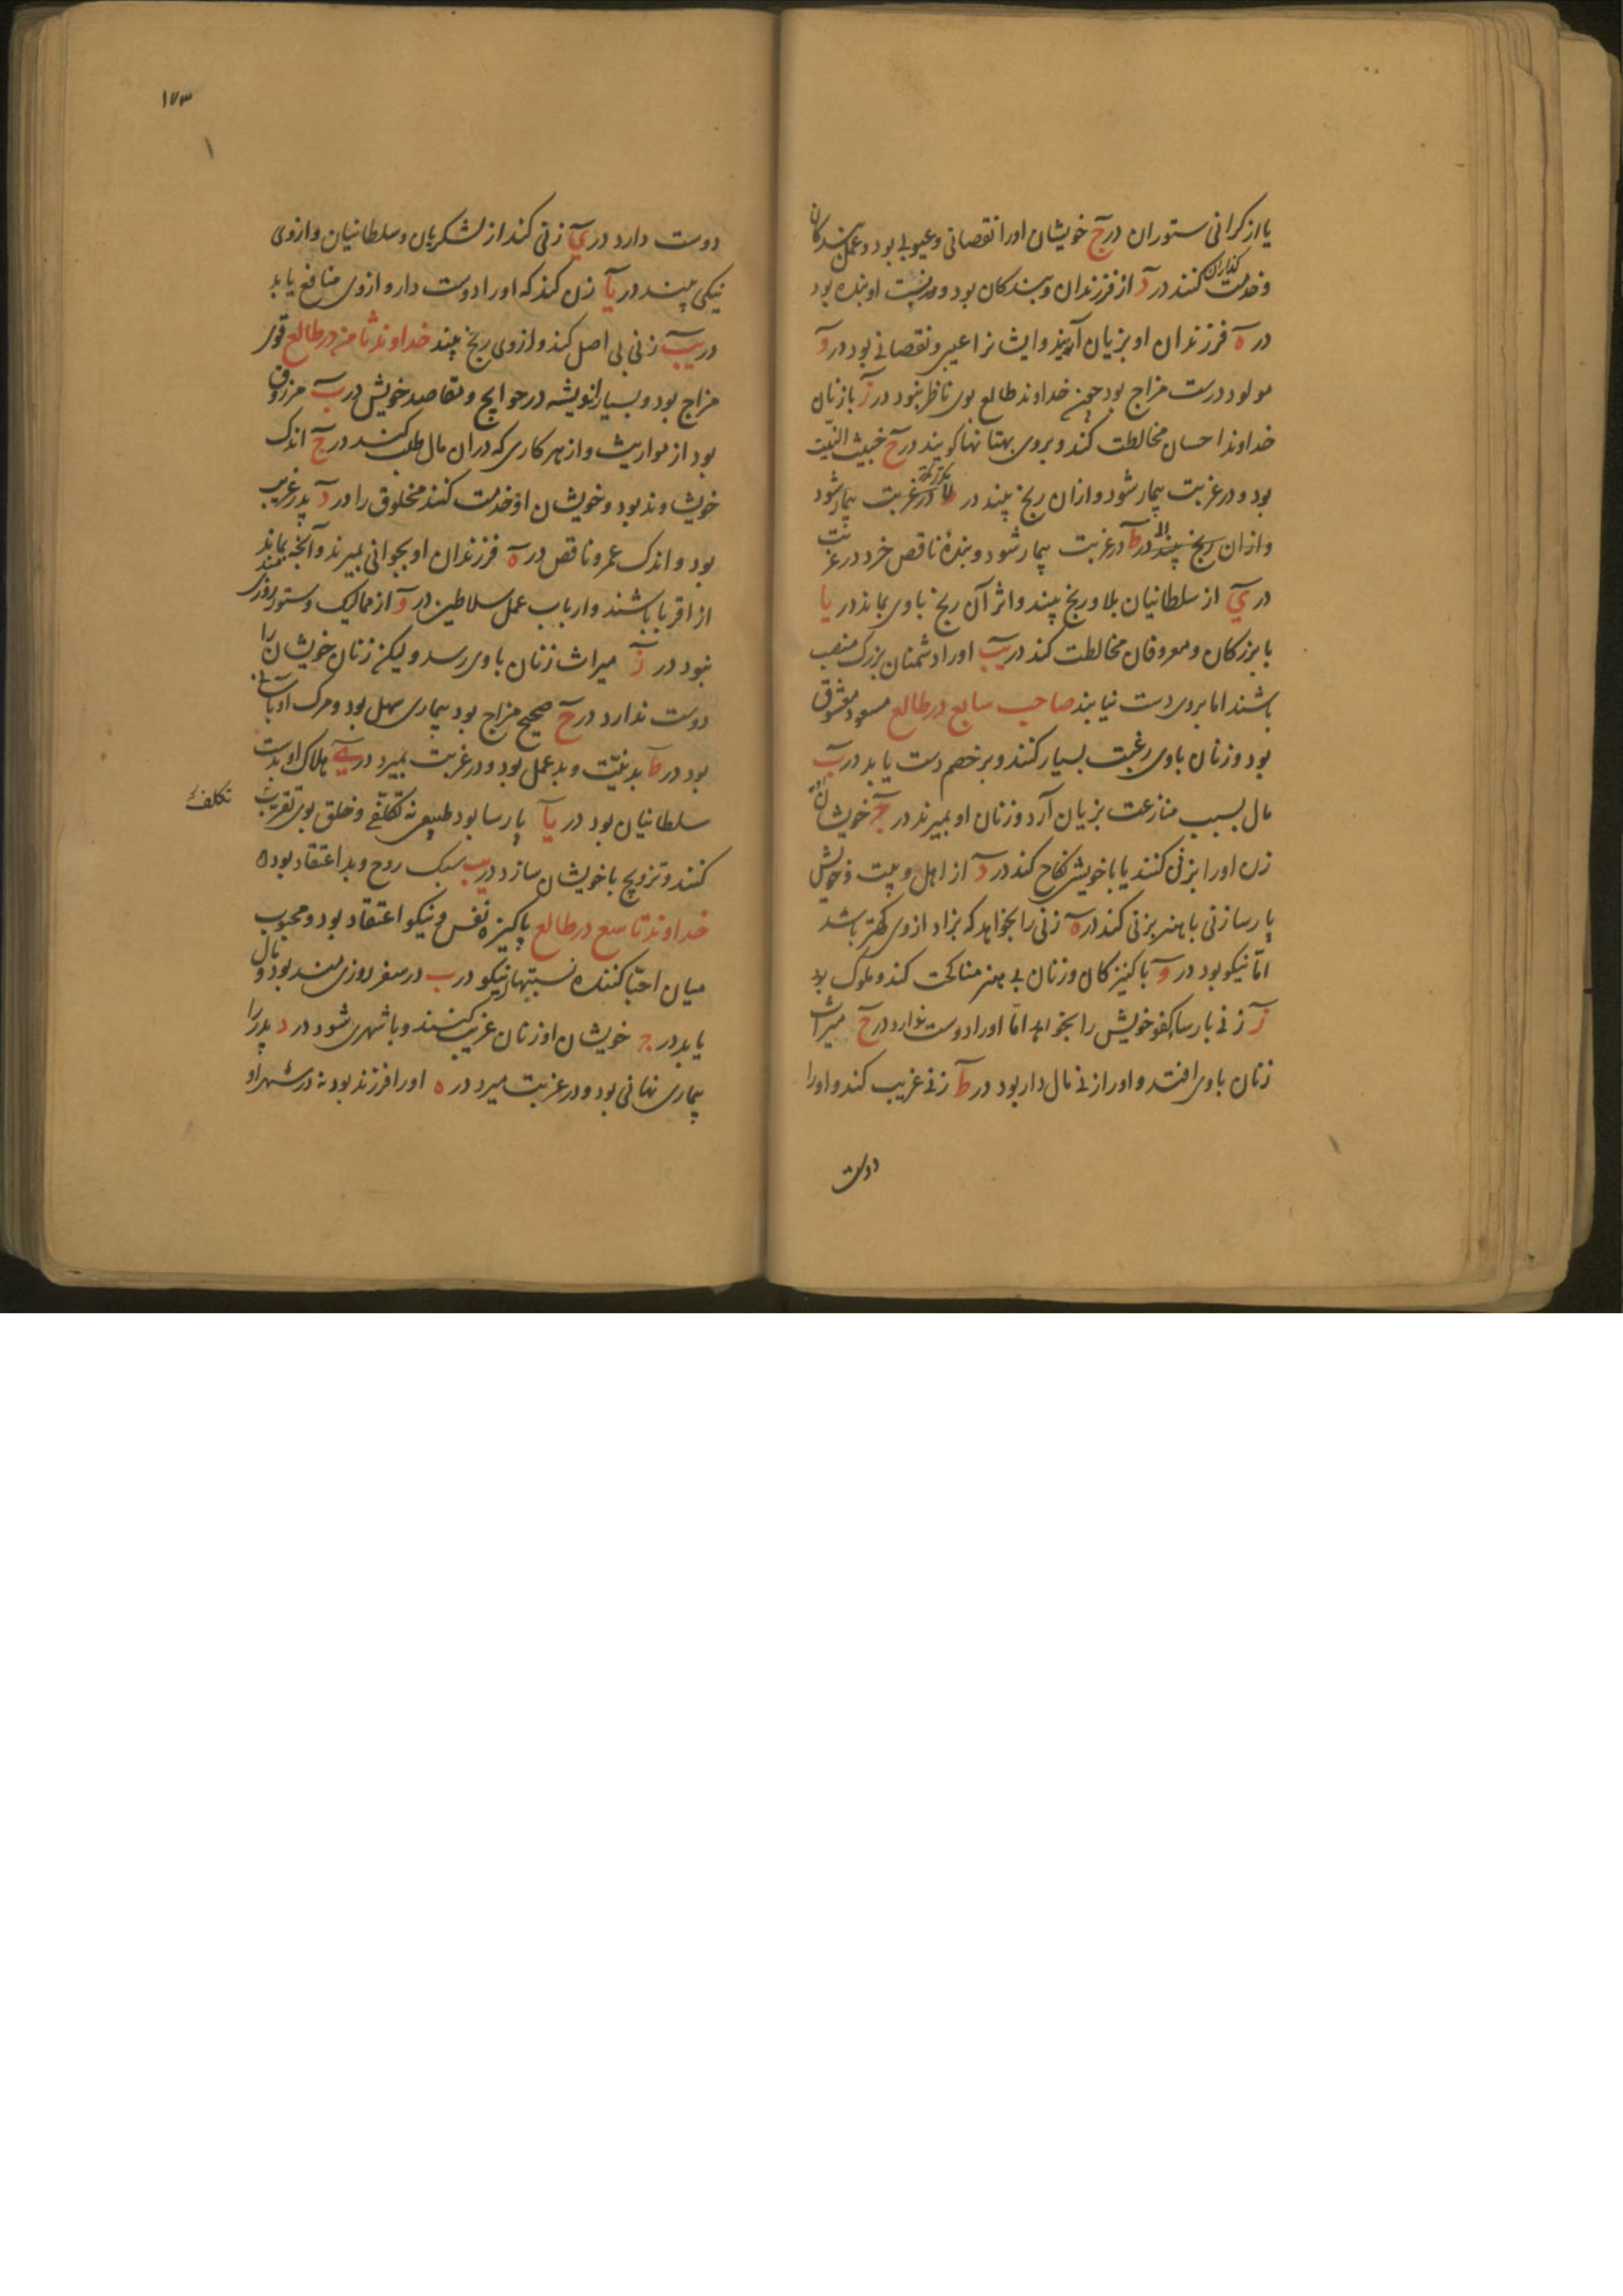 یا از کرانی ستوران در ج خویشان او را نقصانی و عیوبی بود و عمل بندکان
و خدمت کذاران کنند در د از فرزندان و بندکان بود و در نسبت او بنده بود
در ه فرزندان او بزیان آیند و ایشانرا عیبی و نقصانی بود در و
مولود درست مزاج بود چون خداوند طالع بوی ناظر نبود در ز با زنان
خداوند احسان مخالطت کند و بروی بهتانها کویند در ح خبیث النیّت
بود و در غربت بیمار شود و ازان رنج بیند در ط در غربت بیمار شود
و ازان رنج بیند در ط در غربت بیمار شود و بندهٔ ناقص خرد در غربت
در ی از سلطانیان بلا و رنج بیند و اثر آن رنج با وی بماند در یا
با بزرکان و معروفان مخالطت کند در یب او را دشمنان بزرک منصب
باشند اما بروی دست نیابند صاحب سابع در طالع مسعود معشوق
بود و زنان با وی رغبت بسیار کنند و بر خصم دست یابد در ب
مال بسبب منازعت بزیان آرد و زنان او بمیرند در ج خویشان
زن او را بزنی کنند یا با خویش نکاح کند در د از اهل و بیت و خویش
پارسا زنی با هنر بزنی کند در ه زنی را بخواهد که بزاد از وی کهتر باشد
امّا نیکو بود در و با کنیزکان و زنان بی هنر مناکحت کند و ملوک بود
ز زنی پارسا کفو خویش را بخواهد امّا او را دوست ندارد در ح میراث
زنان با وی افتد و او را زنی مال دار بود در ط زنی غریب کند و او را
دوست
۱۷۳
دوست دارد در ی زنی کند از لشکریان و سلطانیان و از وی
نیکی بیند در یا زن کند که او را دوست دارد و از وی منافع یابد
در یب زنی بی اصل کند و از وی رنج بیند خداوند ثامن در طالع قوی
مزاج بود و بسیار اندیشه در حوایج و مقاصد خویش در ب مرزوق
بود از مواریث و از هر کاری که دران مال طلب کنند در ج اندک
خویشاوند بود و خویشان او خدمت کنند مخلوق را در د پدر غریب
بود و اندک عمر و ناقص در ه فرزندان او بجوانی بمیرند و آنچه بمانند
از اقربا باشند و ارباب عمل سلاطین در و از ممالیک و ستور روزی مند
نبود در ز میراث زنان با وی رسد ولیکن زنان خویشان را
دوست ندارد در ح صحیح مزاج بود بیماری سهل بود و مرک او بآسانی
بود در ط بد نیّت و بد عمل بود و در غربت بمیرد در ی هلاک او بدست
سلطانیان بود در یا پارسا بود طبیعی نه تکلّفی و خلق بوی تقرب
تکلف
کنند و تزویج با خویشان سازد در یب سبک روح و بد اعتقاد بود ه
خداوند تاسع در طالع پاکیزه نفس و نیکو اعتقاد بود و محبوب
میان احبّا کننده نسبتهای نیکو در ب در سفر روزی مند بود و مال
یابد در ج خویشان او زنان غریب کنند و با شهری شود در د پدر را
بیماری نهانی بود و در غربت میرد در ه او را فرزند بود نه در شهر او